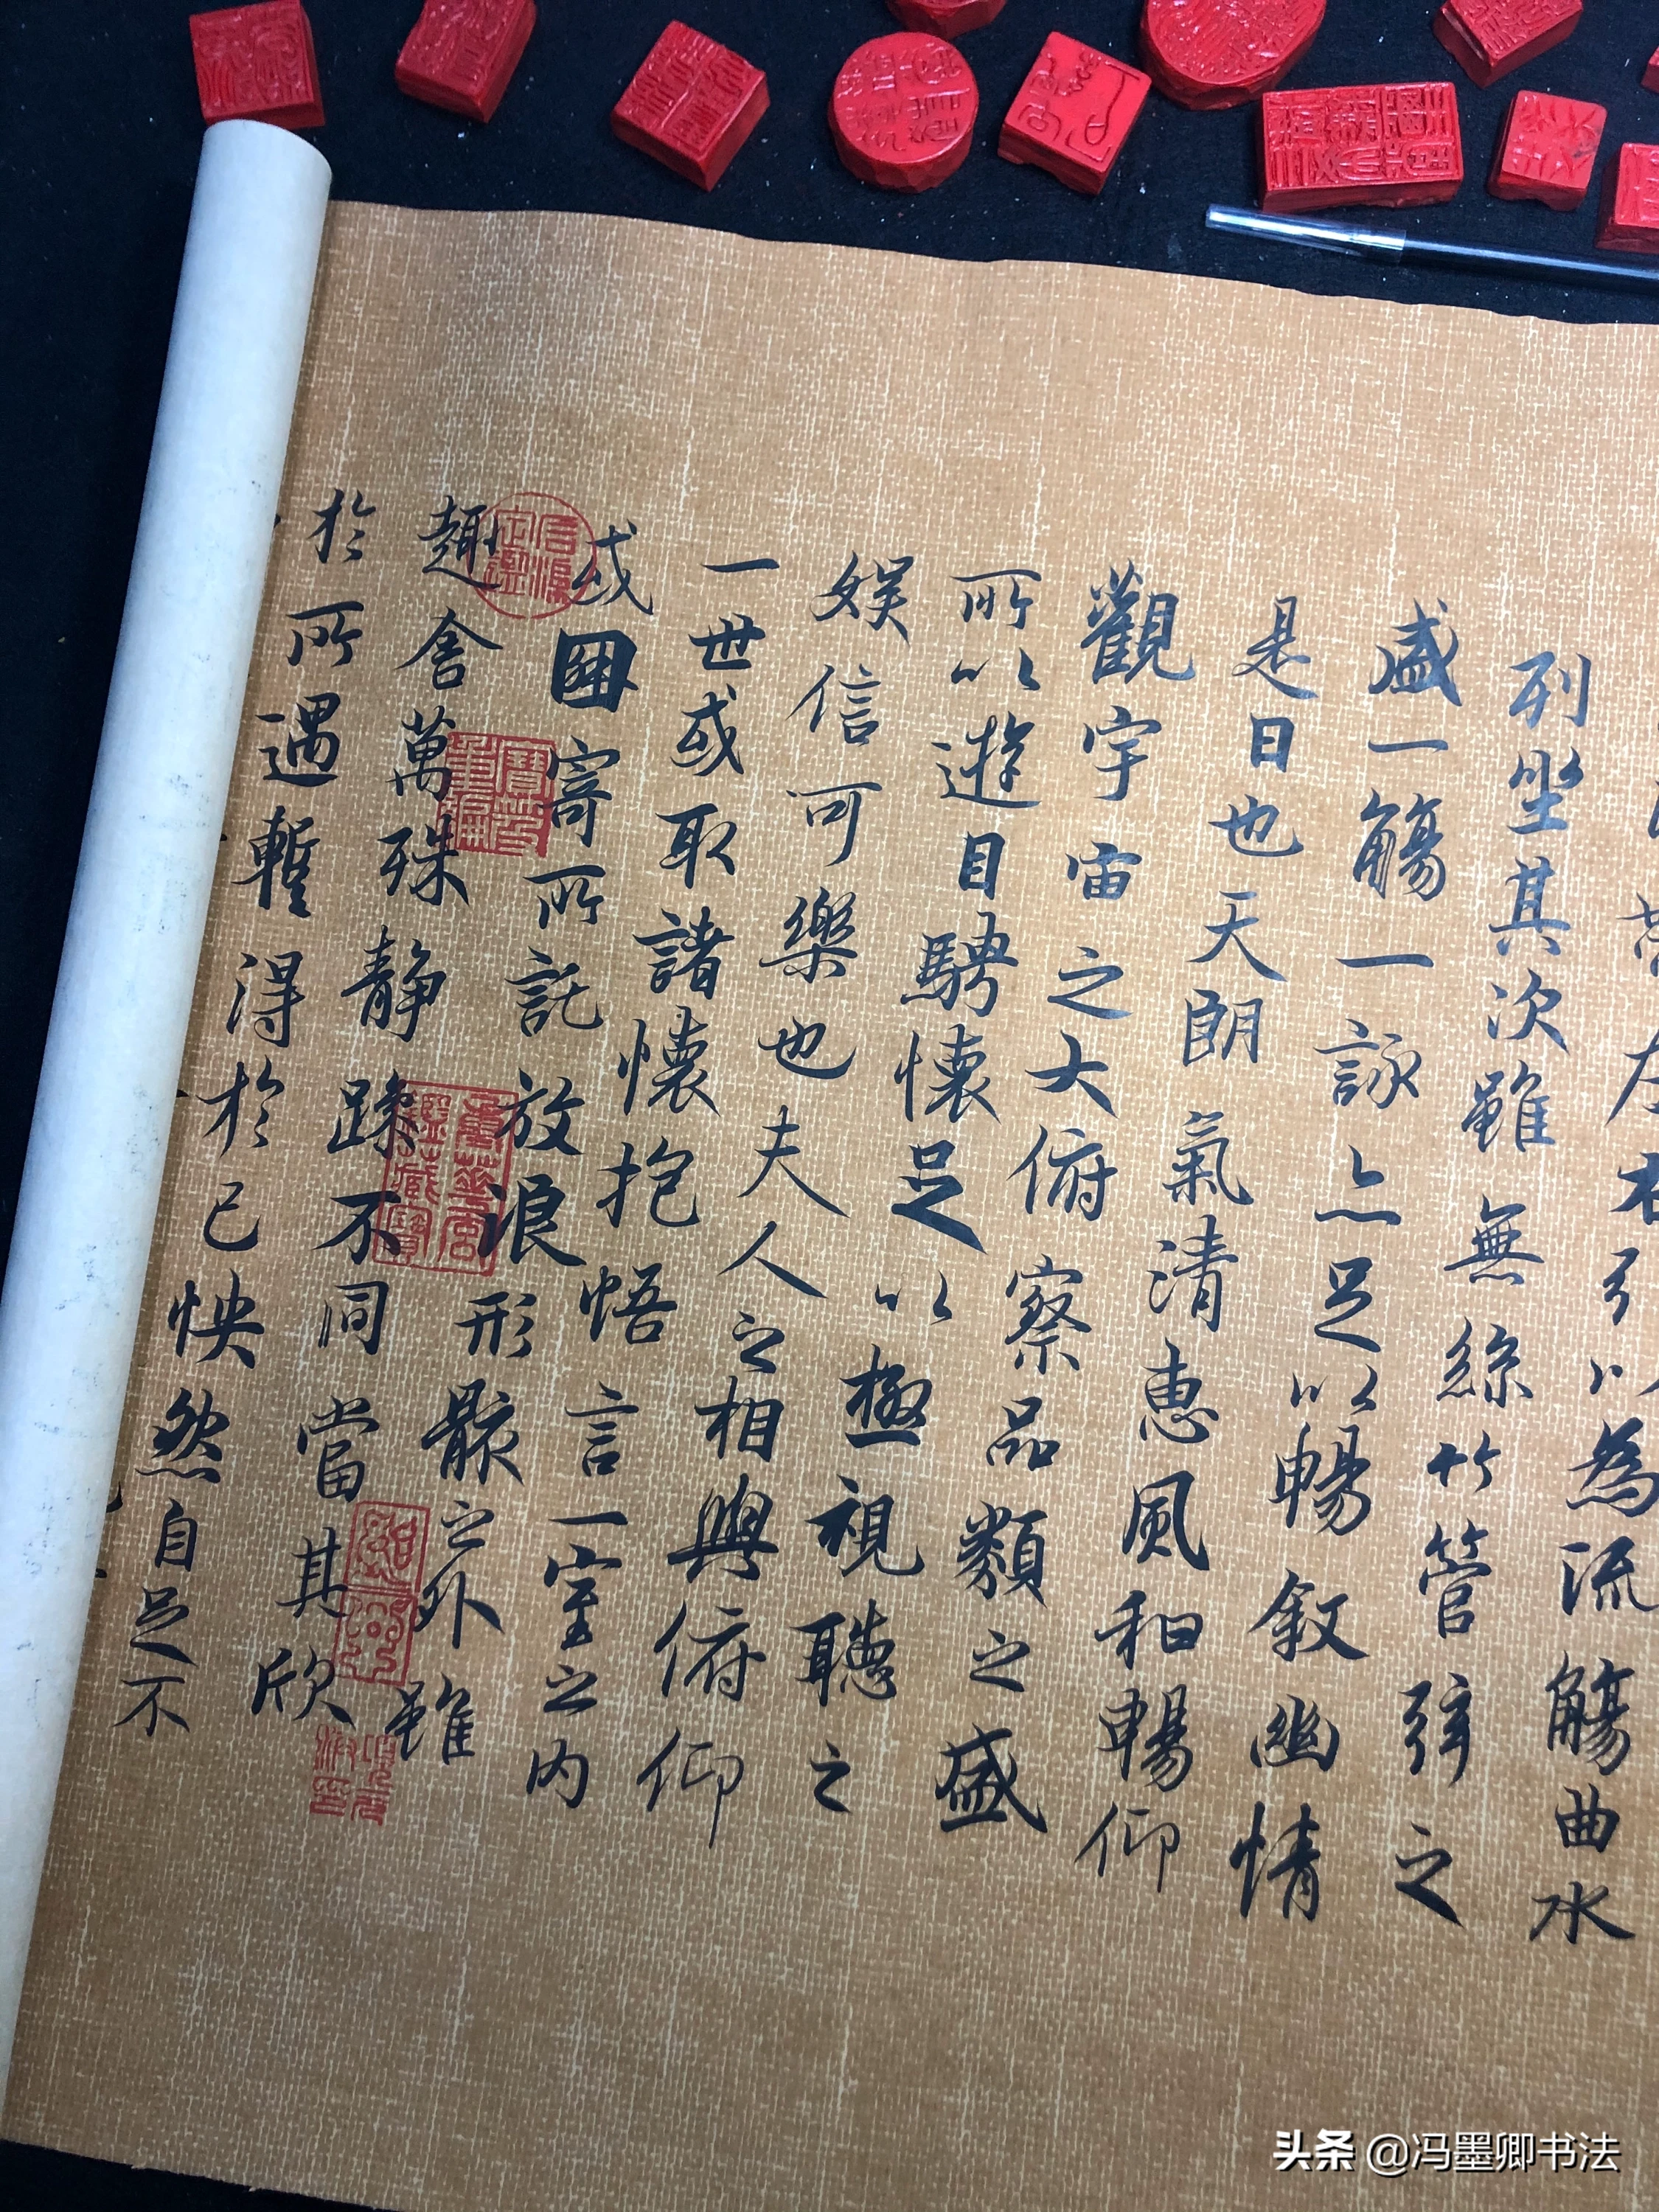 引以為流觴曲水
列坐其次雖無絲竹管弦之
盛一觴一詠亦足以暢敘幽情
是日也天朗氣清惠風和暢仰
觀宇宙之大俯察品類之盛
所以遊目騁懷足以極視聽之
娛信可樂也夫人之相與俯仰
一世或取諸懷抱悟言一室之內
或因寄所託放浪形骸之外雖
趣舍萬殊靜躁不同當其欣
於所遇暫得於己怏然自足不
头条 @冯墨卿书法